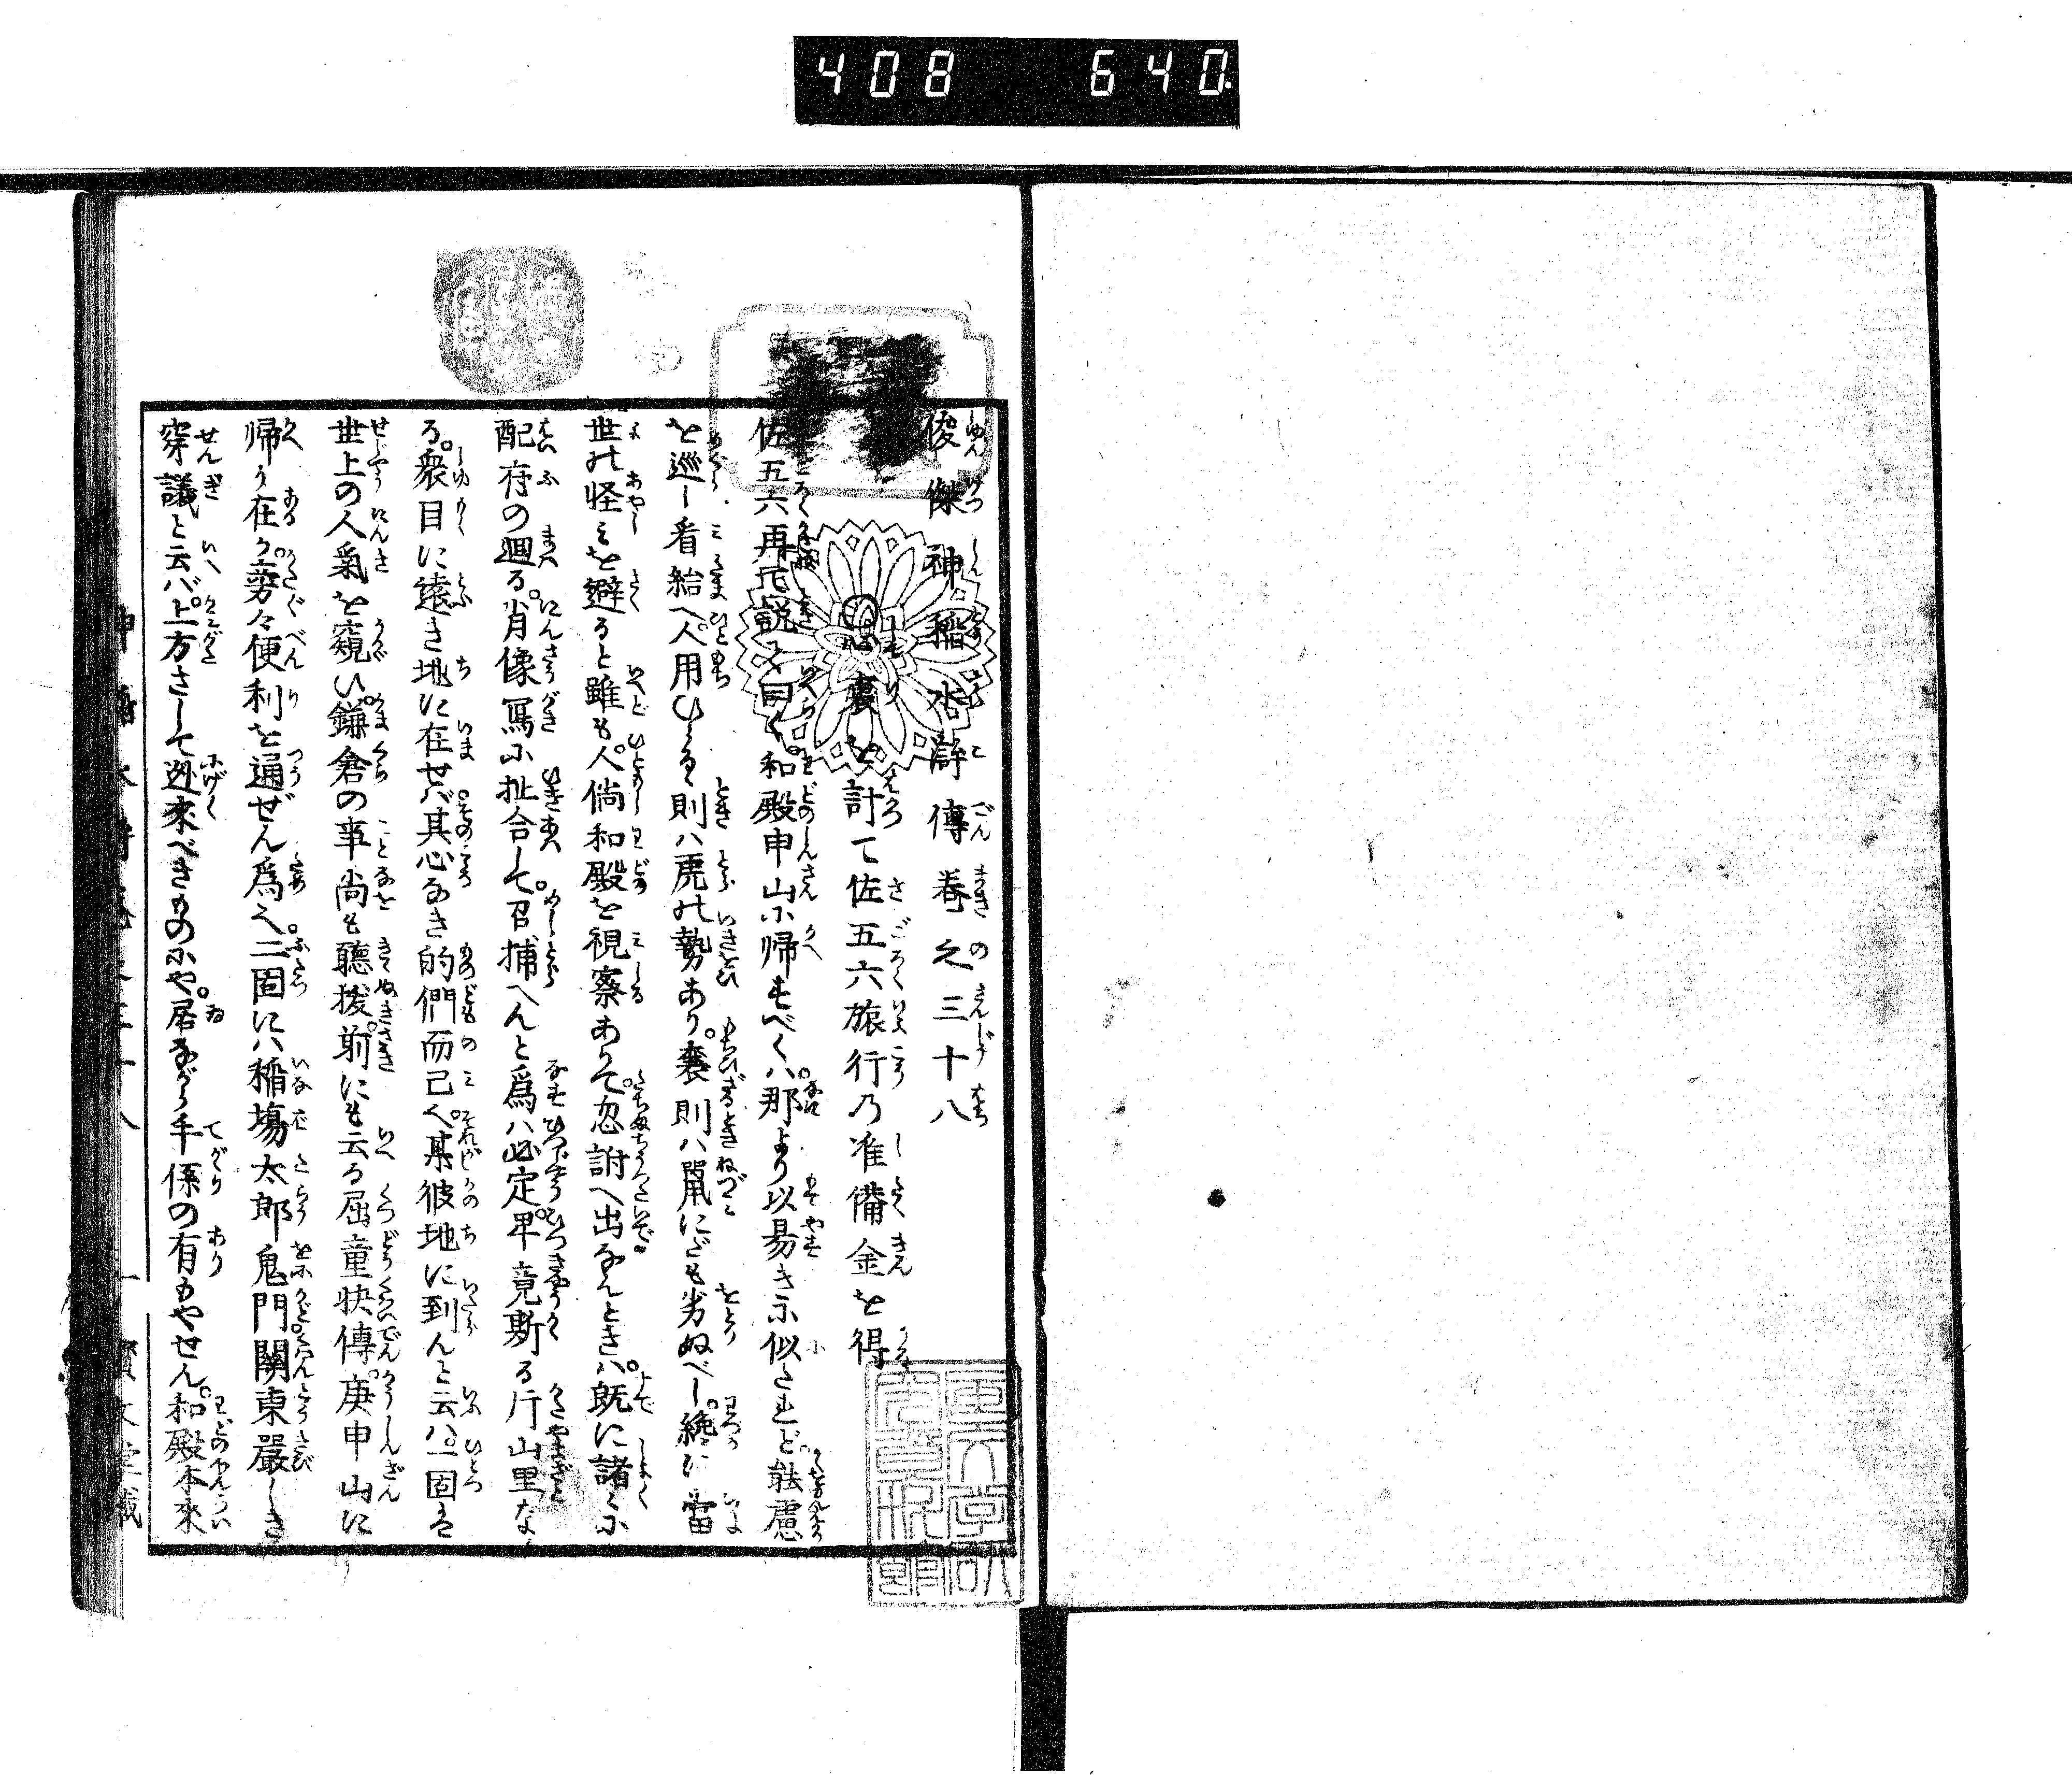 408 640
俊傑神稲水滸傳巻之三十八
心裏を計て佐五六旅行の准備金を得
佐五六再び説て曰く。和殿申山に帰すべくハ。那より以易きに似たれど。能慮
を巡し看給へ。人用ひらるゝ則ハ虎の勢あり。棄則ハ鼠にだも劣ぬべし。纔に當
世の怪みを避ると雖も。人倘和殿を視察ありて。忽訴へ出なんときハ。既に諸々に
配符の廻る。肖像寫に扯合して。召捕へんと爲ハ必定。畢竟斯る片山里な
る。衆目に遠き地に在せバ。其心なき的們而已。某彼地に到んと云ハ。一固ハ
世上の人氣を窺ひ。鎌倉の事尚も聽拔。前にも云る屈童快傳。庚申山に
帰り在か。旁々便利を通ぜん爲。二固にハ稲塲太郎鬼門關東嚴しき
穿議と云バ。上方さして迯來べきものにや。居ながら手係の有もやせん。和殿本來